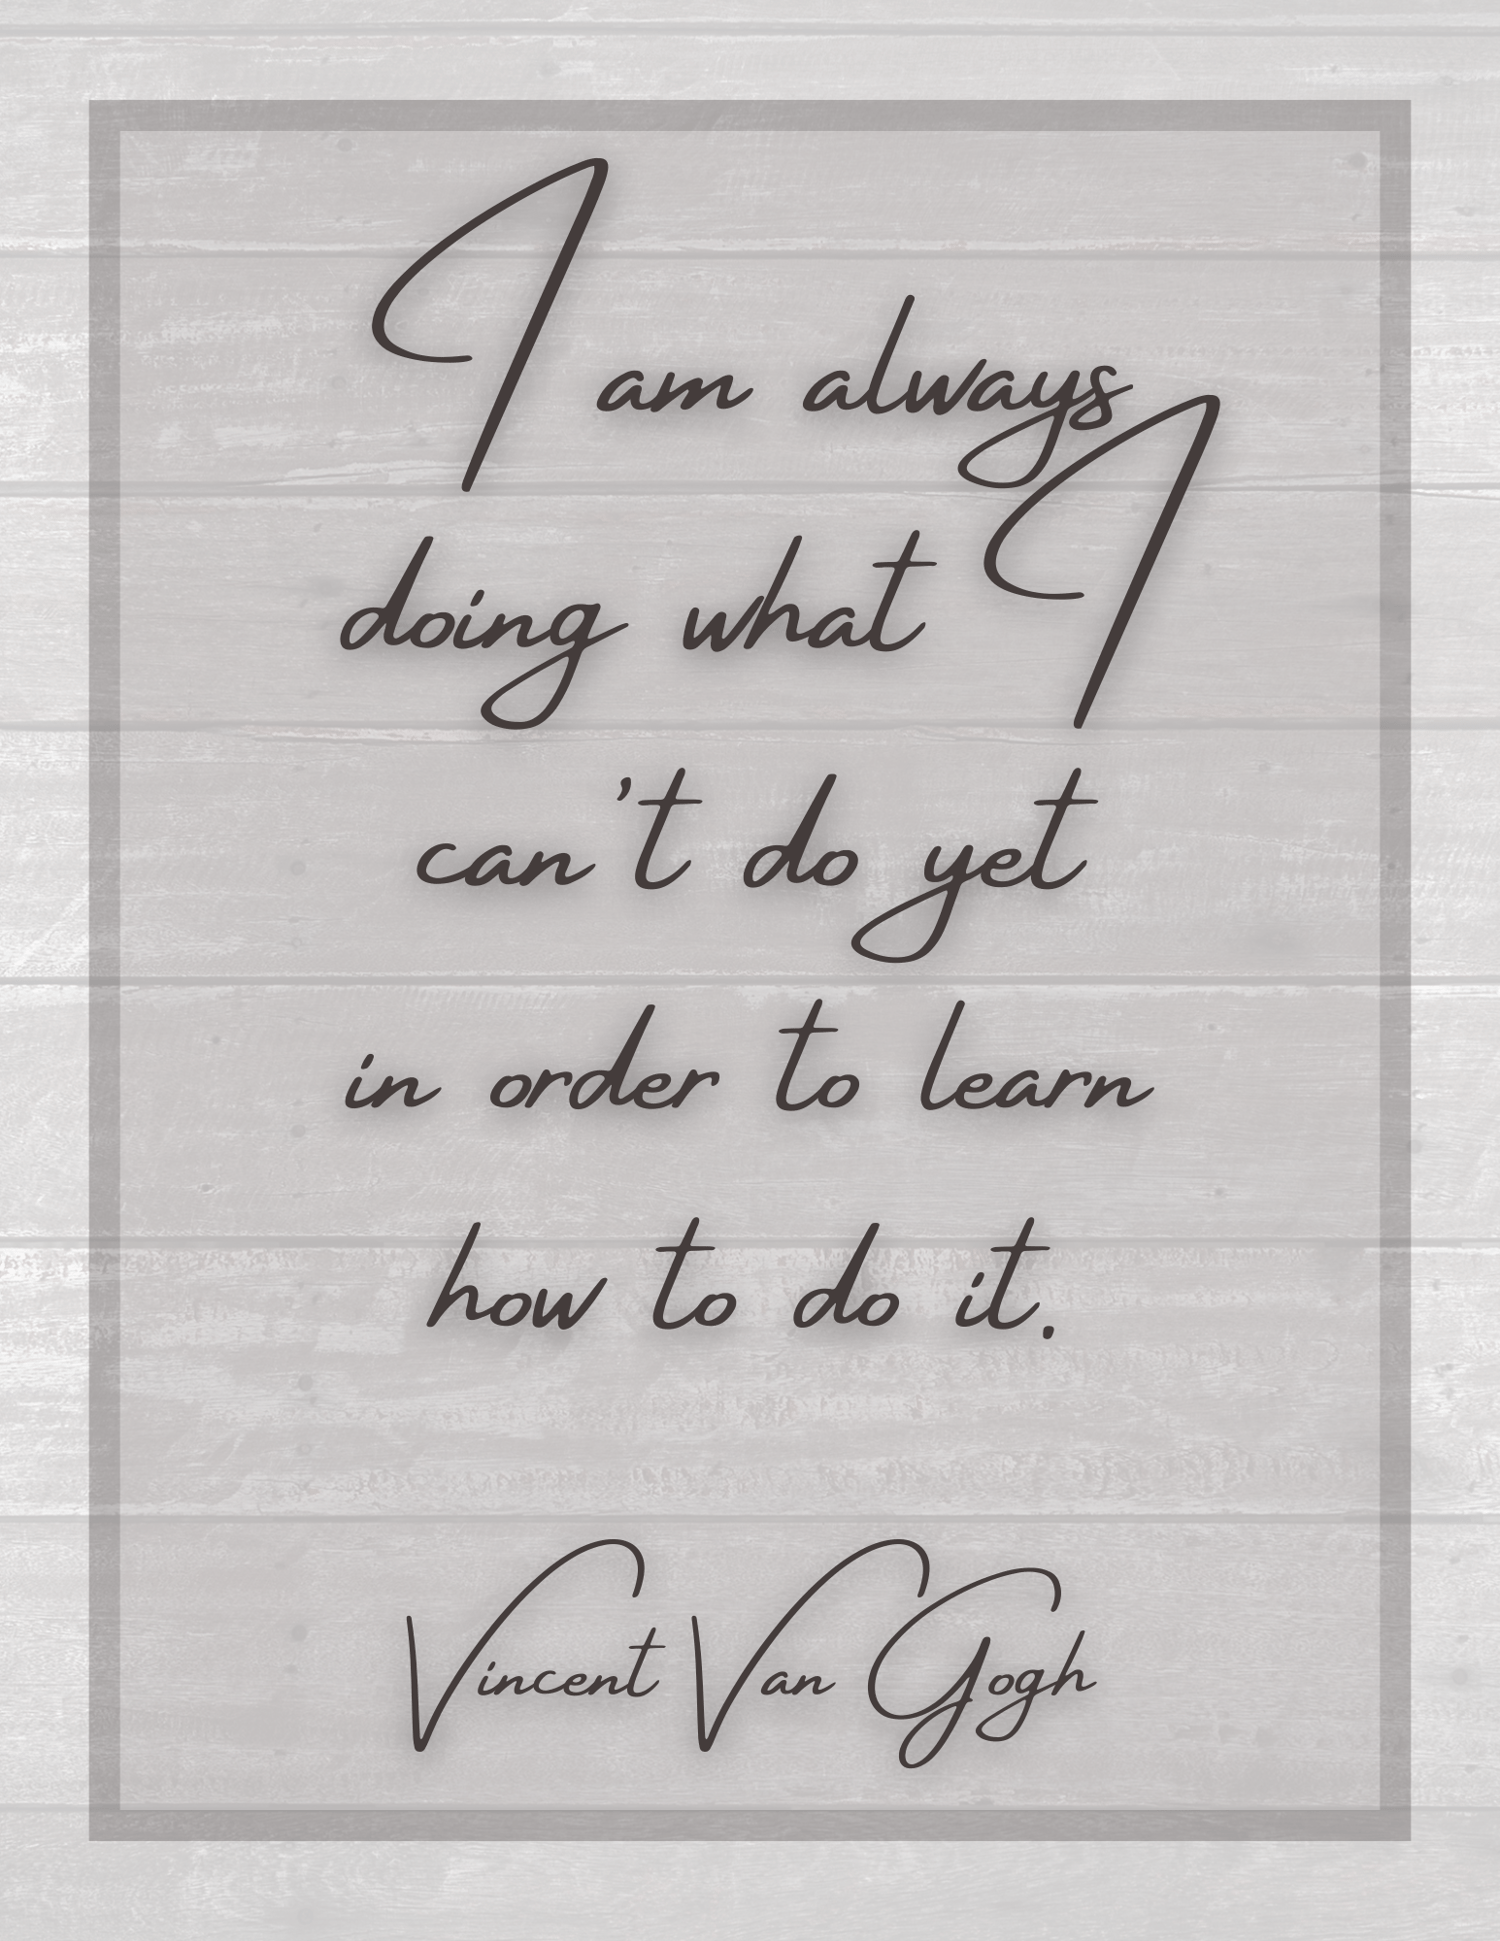 I am always
doing what I
can't do yet
in order to learn
how to do it.
Vincent Van Gogh